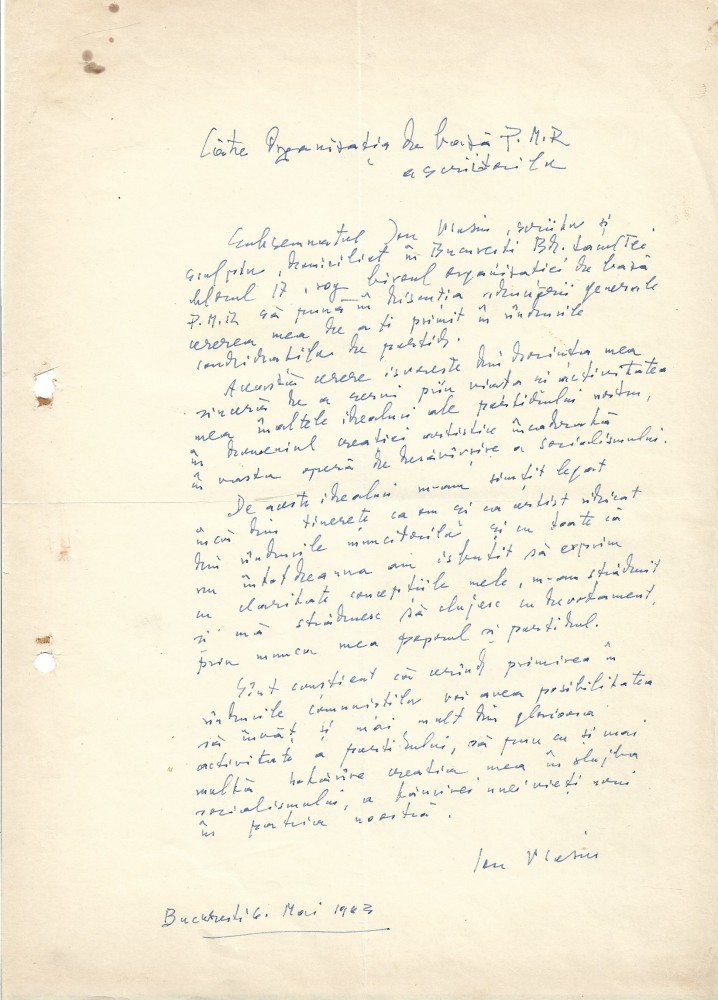 Către Organizația de bază P.M.R
a scriitorilor
Subsemnatul Ion Vlasiu, scriitor și
sculptor, domiciliat în București Bd. Lacul Tei
blocul 17, rog biroul organizației de bază
P.M.R să pună în discuția adunării generale
cererea mea de a fi primit în rîndurile
candidaților de partid.
Această cerere izvorește din dorința mea
sinceră de a servi prin viața și activitatea
mea înaltele idealuri ale partidului nostru,
în domeniul creației artistice încadrată
în vasta operă de desăvîrșire a socialismului.
De aceste idealuri m-am simțit legat
încă din tinerețe ca om și ca artist ridicat
din rîndurile muncitorilor și cu toate că
nu întotdeauna am izbutit să exprim
cu claritate concepțiile mele, m-am străduit
și mă străduesc să slujesc cu devotament,
prin munca mea poporul și partidul.
Sînt conștient că cerînd primirea în
rîndurile comuniștilor voi avea posibilitatea
să învăț și mai mult din glorioasa
activitate a partidului, să pun cu și mai
multă hotărîre creația mea în slujba
socialismului, a făuririi unei vieți noi
în patria noastră.
Ion Vlasiu
București 6. Mai 1963